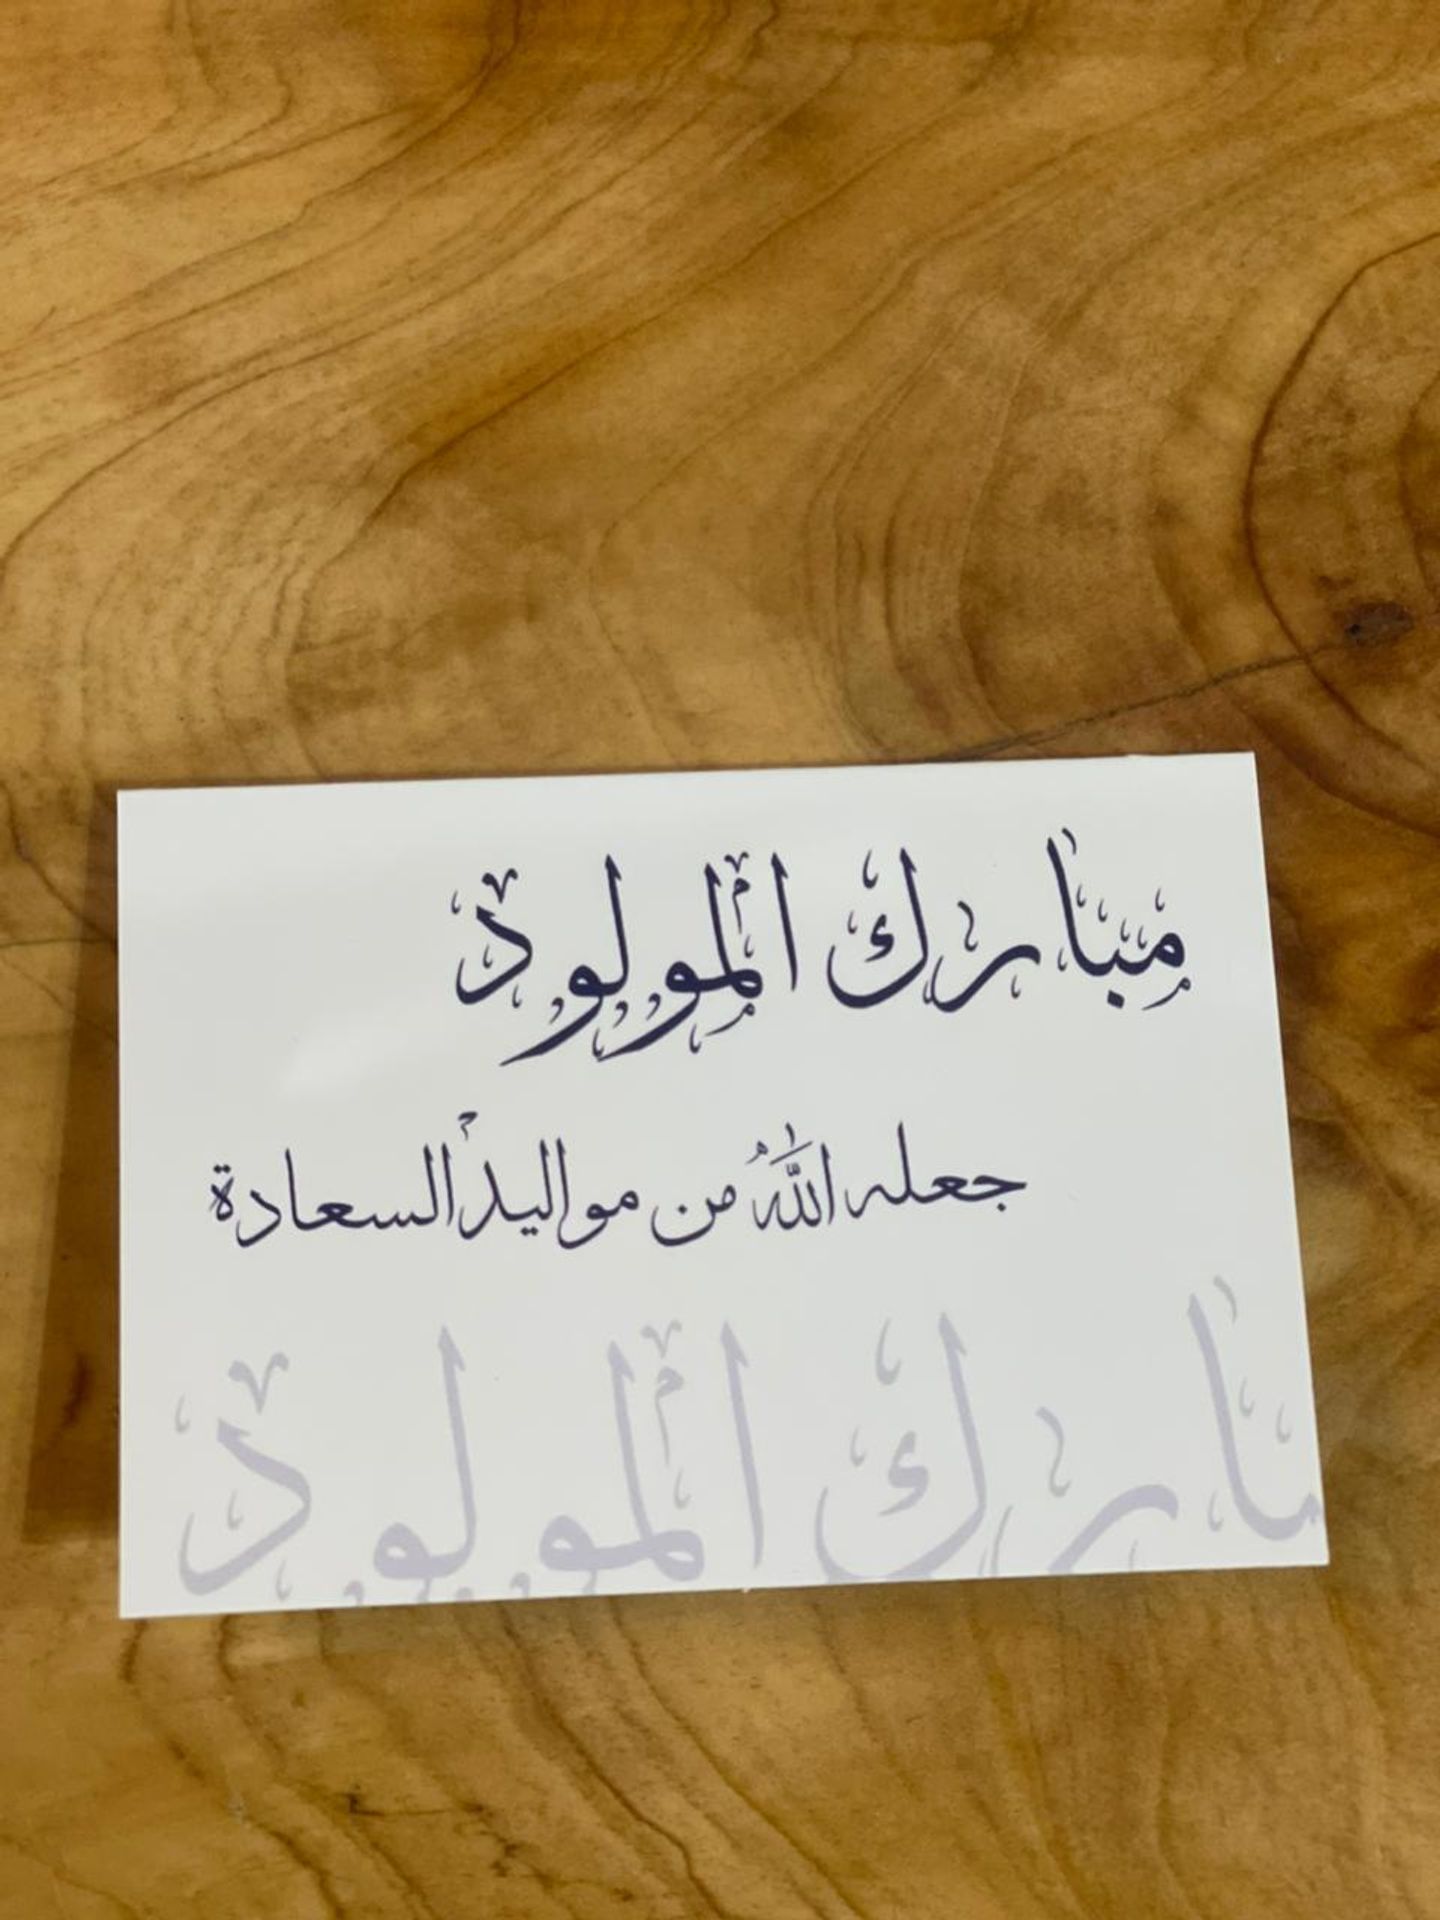 مبارك المولود
جعله اللهُ من مواليد السعادة
مبارك المولود